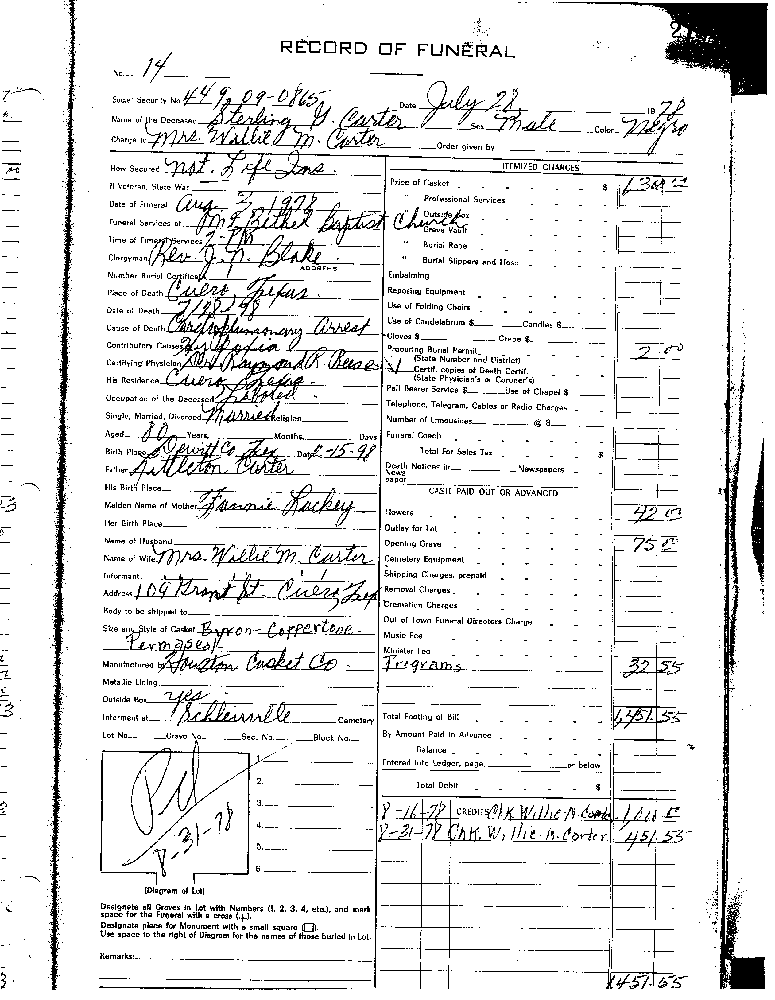 RECORD OF FUNERAL
No. 14
Social Security No. 449-09-0865
Date July 28 1978
Name of the Deceased Sterling G. Carter Sex Male Color Negro
Charge to Mrs. Willie M. Carter Order given by
How Secured Nat. Life Ins.
If Veteran, State War
Date of Funeral Aug. 3, 1978
Funeral Services at Mt Bethel Baptist Church
Time of Funeral Services 2-PM
Clergyman Rev. J. N. Blake
ADDRESS
Number Burial Certificate
Place of Death Cuero, Texas
Date of Death 7/28/78
Cause of Death Cardiopulmonary Arrest
Contributory Causes
Certifying Physician Dr. Raymond R. Reese
His Residence Cuero, Texas
Occupation of the Deceased
Single, Married, Divorced Married Religion
Aged 80 Years, Months, Days
Birth Place Dewitt Co. Tex Date -15-98
Father Littleton Carter
His Birth Place
Maiden Name of Mother Fannie Lackey
Her Birth Place
Name of Husband
Name of Wife Mrs. Willie M. Carter
Informant " " "
Address 109 Grant St. Cuero, Tex
Body to be shipped to
Size and Style of Casket Byron-Coppertone-
Permaseal
Manufactured by Houston Casket Co
Metallic Lining
Outside Box yes
Interment at Cemetery
Lot No. Grave No. Sec. No. Block No.
Pd
8-31-78
1.
2.
3.
4.
5.
6.
(Diagram of Lot)
Designate all Graves in Lot with Numbers (1, 2, 3, 4, etc.), and mark
space for the Funeral with a cross (+).
Designate place for Monument with a small square (□).
Use space to the right of Diagram for the names of those buried in Lot.
Remarks:
ITEMIZED CHARGES
Price of Casket $
Professional Services
" Outside Box
" Grave Vault
" Burial Robe
" Burial Slippers and Hose
Embalming
Reporting Equipment
Use of Folding Chairs
Use of Candelabrum $ Candles $
Gloves $ Crepe $
Procuring Burial Permit 2.00
(State Number and District)
Certif. copies of Death Certif.
(State Physician's or Coroner's)
Pall Bearer Service $ Use of Chapel $
Telephone, Telegram, Cables or Radio Charges
Number of Limousines @ $
Funeral Coach
Total For Sales Tax $
Death Notices in Newspapers
News
paper
CASH PAID OUT OR ADVANCED
Flowers 42 00
Outlay for Lot
Opening Grave 75 00
Cemetery Equipment
Shipping Charges, prepaid
Removal Charges
Cremation Charges
Out of Town Funeral Directors Charge
Music Fee
Minister Fee
Programs 32 55
Total Footing of Bill 1,451.55
By Amount Paid in Advance
Balance
Entered into Ledger, page or below
Total Debit $
8-16-78 CREDITS Chk Willie M. Carter
8-31-78 Chk. Willie M. Carter 451.55
1451.55